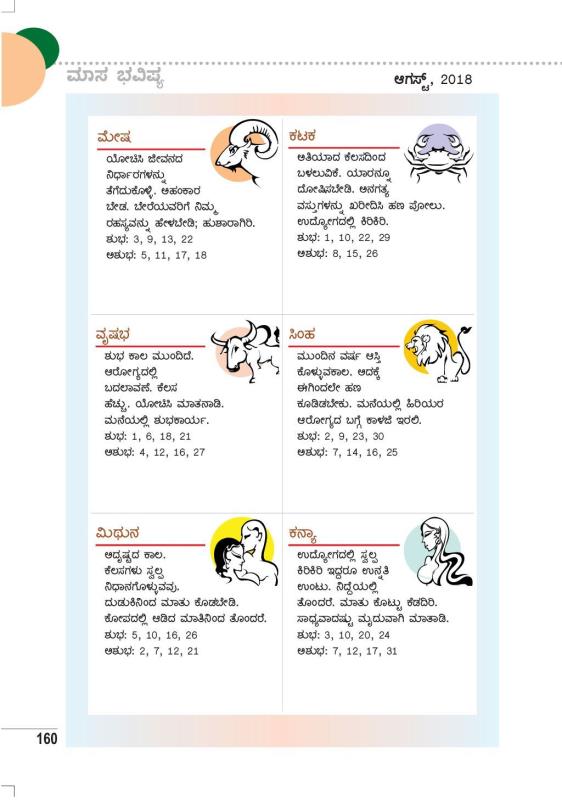 ಮಾಸ ಭವಿಷ್ಯ
ಆಗಸ್ಟ್, 2018
ಮೇಷ
ಯೋಚಿಸಿ ಜೀವನದ
ನಿರ್ಧಾರಗಳನ್ನು
ತೆಗೆದುಕೊಳ್ಳಿ. ಅಹಂಕಾರ
ಬೇಡ. ಬೇರೆಯವರಿಗೆ ನಿಮ್ಮ
ರಹಸ್ಯವನ್ನು ಹೇಳಬೇಡಿ; ಹುಶಾರಾಗಿರಿ.
ಶುಭ: 3, 9, 13, 22
ಅಶುಭ: 5, 11, 17, 18
ವೃಷಭ
ಶುಭ ಕಾಲ ಮುಂದಿದೆ.
ಆರೋಗ್ಯದಲ್ಲಿ
ಬದಲಾವಣೆ. ಕೆಲಸ
ಹೆಚ್ಚು. ಯೋಚಿಸಿ ಮಾತನಾಡಿ.
ಮನೆಯಲ್ಲಿ ಶುಭಕಾರ್ಯ.
ಶುಭ: 1, 6, 18, 21
ಅಶುಭ: 4, 12, 16, 27
ಮಿಥುನ
ಅದೃಷ್ಟದ ಕಾಲ.
ಕೆಲಸಗಳು ಸ್ವಲ್ಪ
ನಿಧಾನಗೊಳ್ಳುವವು.
ದುಡುಕಿನಿಂದ ಮಾತು ಕೊಡಬೇಡಿ.
ಕೋಪದಲ್ಲಿ ಆಡಿದ ಮಾತಿನಿಂದ ತೊಂದರೆ.
ಶುಭ: 5, 10, 16, 26
ಅಶುಭ: 2, 7, 12, 21
ಕಟಕ
ಅತಿಯಾದ ಕೆಲಸದಿಂದ
ಬಳಲುವಿಕೆ. ಯಾರನ್ನೂ
ದೋಷಿಸಬೇಡಿ. ಅನಗತ್ಯ
ವಸ್ತುಗಳನ್ನು ಖರೀದಿಸಿ ಹಣ ಪೋಲು.
ಉದ್ಯೋಗದಲ್ಲಿ ಕಿರಿಕಿರಿ.
ಶುಭ: 1, 10, 22, 29
ಅಶುಭ: 8, 15, 26
ಸಿಂಹ
ಮುಂದಿನ ವರ್ಷ ಆಸ್ತಿ
ಕೊಳ್ಳುವಕಾಲ. ಅದಕ್ಕೆ
ಈಗಿಂದಲೇ ಹಣ
ಕೂಡಿಡಬೇಕು. ಮನೆಯಲ್ಲಿ ಹಿರಿಯರ
ಆರೋಗ್ಯದ ಬಗ್ಗೆ ಕಾಳಜಿ ಇರಲಿ.
ಶುಭ: 2, 9, 23, 30
ಅಶುಭ: 7, 14, 16, 25
ಕನ್ಯಾ
ಉದ್ಯೋಗದಲ್ಲಿ ಸ್ವಲ್ಪ
ಕಿರಿಕಿರಿ ಇದ್ದರೂ ಉನ್ನತಿ
ಉಂಟು. ನಿದ್ದೆಯಲ್ಲಿ
ತೊಂದರೆ. ಮಾತು ಕೊಟ್ಟು ಕೆಡದಿರಿ.
ಸಾಧ್ಯವಾದಷ್ಟು ಮೃದುವಾಗಿ ಮಾತಾಡಿ.
ಶುಭ: 3, 10, 20, 24
ಅಶುಭ: 7, 12, 17, 31
160